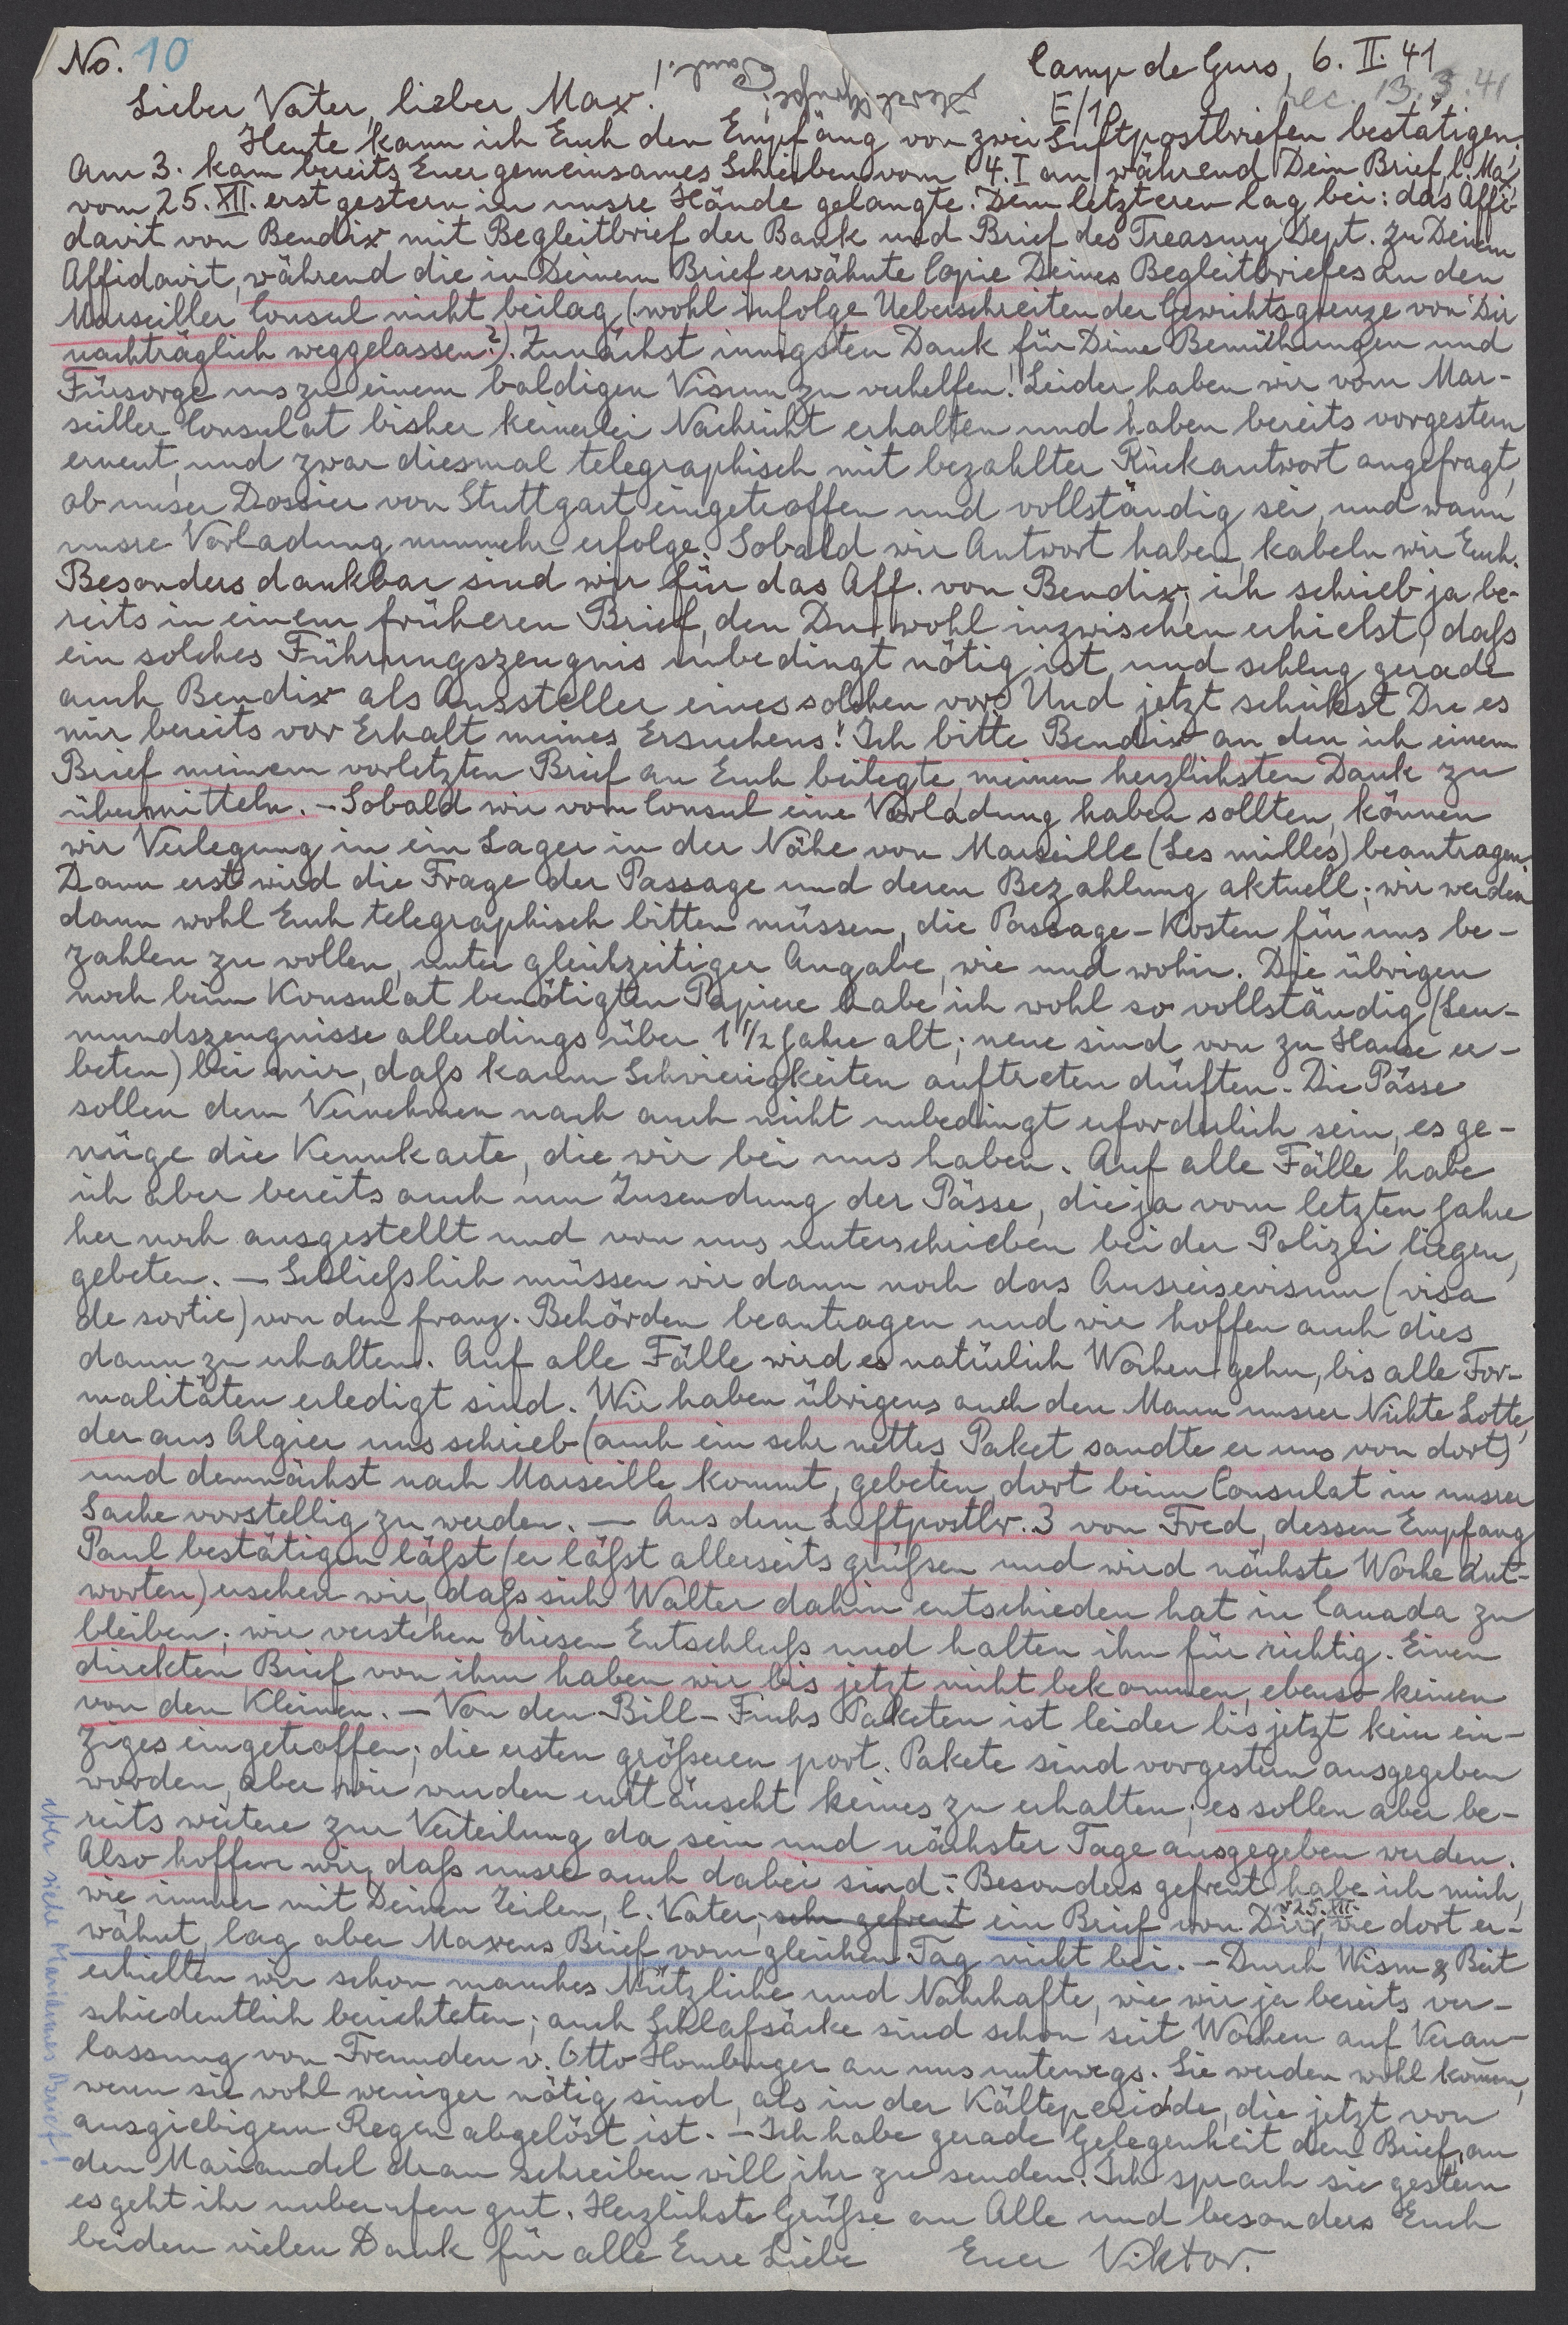 No. 10
Camp de Gurs, 6. II. 41
rec. 13.3.41
E/10
Herzl. Grüße!
Paul.
Lieber Vater, lieber Max!
Heute kann ich Euch den Empfang von zwei Luftpostbriefen bestätigen.
Am 3. kam bereits Euer gemeinsames Schreiben vom 4. I an, während Dein Brief, l. Max,
vom 25. XII. erst gestern in unsre Hände gelangte. Dem letzteren lag bei: das Affi-
davit von Bendix mit Begleitbrief der Bank und Brief des Treasury Dept. zu Deinem
Affidavit, während die in Deinem Brief erwähnte Copie Deines Begleitbriefes an den
Marseiller Consul nicht beilag, (wohl infolge Ueberschreiten der Gewichtsgrenze von Dir
nachträglich weggelassen?). Zunächst innigsten Dank für Deine Bemühungen und
Fürsorge uns zu einem baldigen Visum zu verhelfen! Leider haben wir vom Mar-
seiller Consulat bisher keinerlei Nachricht erhalten und haben bereits vorgestern
erneut, und zwar diesmal telegraphisch mit bezahlter Rückantwort angefragt,
ob unser Dossier von Stuttgart eingetroffen und vollständig sei, und wann
unsre Vorladung nunmehr erfolge. Sobald wir Antwort haben, kabeln wir Euch.
Besonders dankbar sind wir für das Aff. von Bendix; ich schrieb ja be-
reits in einem früheren Brief, den Du wohl inzwischen erhielst, daſs
ein solches Führungszeugnis unbedingt nötig ist und schlug gerade
auch Bendix als Aussteller eines solchen vor. Und jetzt schickst Du es
mir bereits vor Erhalt meines Ersuchens! Ich bitte Bendix an den ich einem
Brief meinem vorletzten Brief an Euch beilegte, meinen herzlichsten Dank zu
übermitteln. – Sobald wir vom Consul eine Vorladung haben sollten, können
wir Verlegung in ein Lager in der Nähe von Marseille (Les milles) beantragen.
Dann erst wird die Frage der Passage und deren Bezahlung aktuell; wir werden
dann wohl Euch telegraphisch bitten müssen, die Passage-Kosten für uns be-
zahlen zu wollen, unter gleichzeitiger Angabe, wie und wohin. Die übrigen
noch beim Konsulat benötigten Papiere habe ich wohl so vollständig (Leu-
mundszeugnisse allerdings über 1 1/2 Jahre alt; neue sind von zu Hause er-
beten) bei mir, daſs kaum Schwierigkeiten auftreten dürften. Die Pässe
sollen dem Vernehmen nach auch nicht unbedingt erforderlich sein, es ge-
nüge die Kennkarte, die wir bei uns haben. Auf alle Fälle habe
ich aber bereits auch um Zusendung der Pässe, die ja vom letzten Jahre
her noch ausgestellt und von uns unterschrieben bei der Polizei liegen,
gebeten. – Schlieſslich müssen wir dann noch das Ausreisevisum (visa
de sortie) von den franz. Behörden beantragen und wir hoffen auch dies
dann zu erhalten. Auf alle Fälle wird es natürlich Wochen gehn, bis alle For-
malitäten erledigt sind. Wir haben übrigens auch den Mann unsrer Nichte Lotte,
der aus Algier uns schrieb (auch ein sehr nettes Paket sandte er uns von dort)
und demnächst nach Marseille kommt, gebeten, dort beim Consulat in unsrer
Sache vorstellig zu werden. – Aus dem Luftpostbr. 3 von Fred, dessen Empfang
Paul bestätigen läſst (er läſst allerseits grüſsen und wird nächste Woche ant-
worten) ersehen wir, daſs sich Walter dahin entschieden hat in Canada zu
bleiben; wir verstehen diesen Entschluſs und halten ihn für richtig. Einen
direkten Brief von ihm haben wir bis jetzt nicht bekommen, ebenso keinen
von den Kleinen. – Von den Bill-Fuchs Paketen ist leider bis jetzt kein ein-
ziges eingetroffen; die ersten gröſseren port. Pakete sind vorgestern ausgegeben
worden, aber wir wurden enttäuscht keines zu erhalten; es sollen aber be-
reits weitere zur Verteilung da sein und nächster Tage ausgegeben werden.
Also hoffen wir, daſs unsre auch dabei sind. – Besonders gefreut habe ich mich,
wie immer mit Deinen Zeilen, l. Vater; sehr gefreut ein Brief von Dir v. 25. XII., wie dort er-
wähnt, lag aber Maxens Brief vom gleichen Tag nicht bei. – Durch Wism & Beit
erhielten wir schon manches Nützliche und Nahrhafte, wie wir ja bereits ver-
schiedentlich berichteten; auch Schlafsäcke sind schon seit Wochen auf Veran-
lassung von Freunden v. Otto Homburger an uns unterwegs. Sie werden wohl kom̄en,
wenn sie wohl weniger nötig sind, als in der Kälteperiode, die jetzt von
ausgiebigem Regen abgelöst ist. – Ich habe gerade Gelegenheit den Brief, an
den Mariandel dran schreiben will, ihr zu senden. Ich sprach sie gestern
es geht ihr unberufen gut. Herzlichste Grüſse an Alle und besonders Euch
beiden vielen Dank für alle Eure Liebe Euer Viktor.
aber siehe Mariannes Brief!